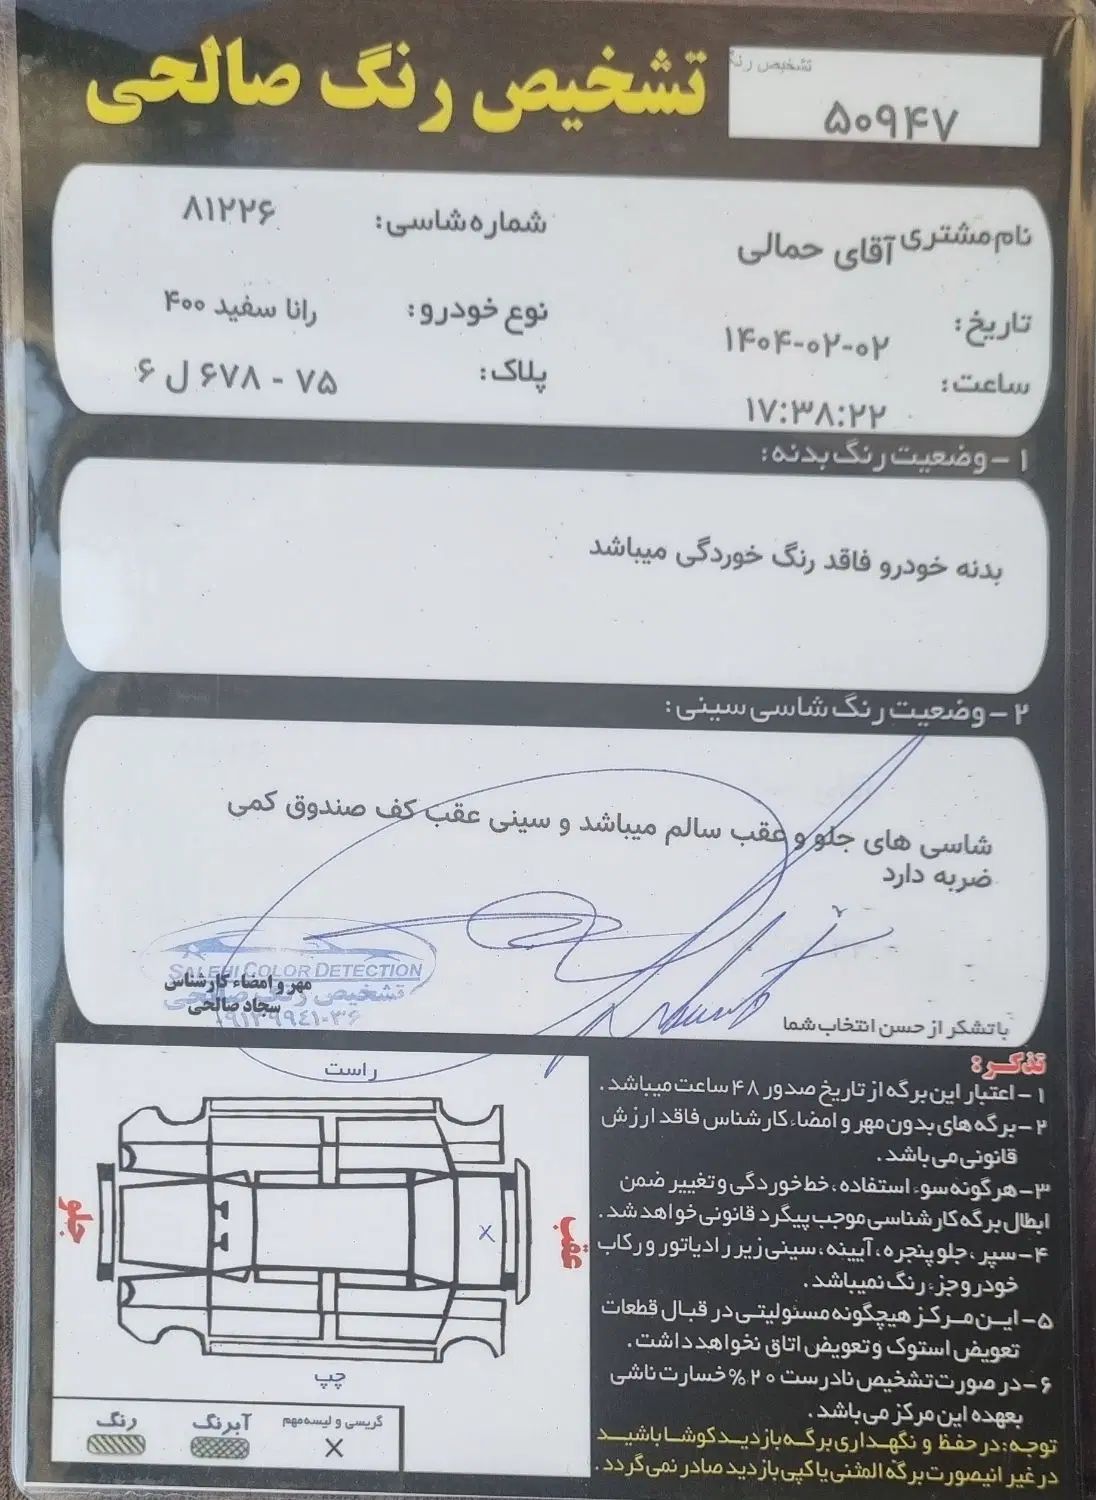 تشخیص رنگ صالحی
تشخیص رنگ
۵۰۹۴۷
نام مشتری آقای حمالی
شماره شاسی: ۸۱۲۲۶
تاریخ: ۱۴۰۴-۰۲-۰۲
نوع خودرو: رانا سفید ۴۰۰
ساعت: ۱۷:۳۸:۲۲
پلاک: ۷۵ - ۶۷۸ ل ۶
۱ - وضعیت رنگ بدنه:
بدنه خودرو فاقد رنگ خوردگی میباشد
۲ - وضعیت رنگ شاسی سینی:
شاسی های جلو و عقب سالم میباشد و سینی عقب کف صندوق کمی
ضربه دارد
SALEHI COLOR DETECTION
مهر و امضاء کارشناس
تشخیص رنگ صالحی
سجاد صالحی
با تشکر از حسن انتخاب شما
تذکر:
۱ - اعتبار این برگه از تاریخ صدور ۴۸ ساعت میباشد.
۲ - برگه های بدون مهر و امضاء کارشناس فاقد ارزش
قانونی می باشد.
۳ - هرگونه سوء استفاده، خط خوردگی و تغییر ضمن
ابطال برگه کارشناسی موجب پیگرد قانونی خواهد شد.
۴ - سپر، جلو پنجره، آیینه، سینی زیر رادیاتور و رکاب
خودرو جزء رنگ نمیباشد.
۵ - این مرکز هیچگونه مسئولیتی در قبال قطعات
تعویض استوک و تعویض اتاق نخواهد داشت.
۶ - در صورت تشخیص نادرست ۲۰% خسارت ناشی
بعهده این مرکز می باشد.
توجه: در حفظ و نگهداری برگه بازدید کوشا باشید
در غیر اینصورت برگه المثنی یا کپی بازدید صادر نمی گردد.
راست
جلو
عقب
X
چپ
رنگ
آبرنگ
گریسی و لیسه مهم
X